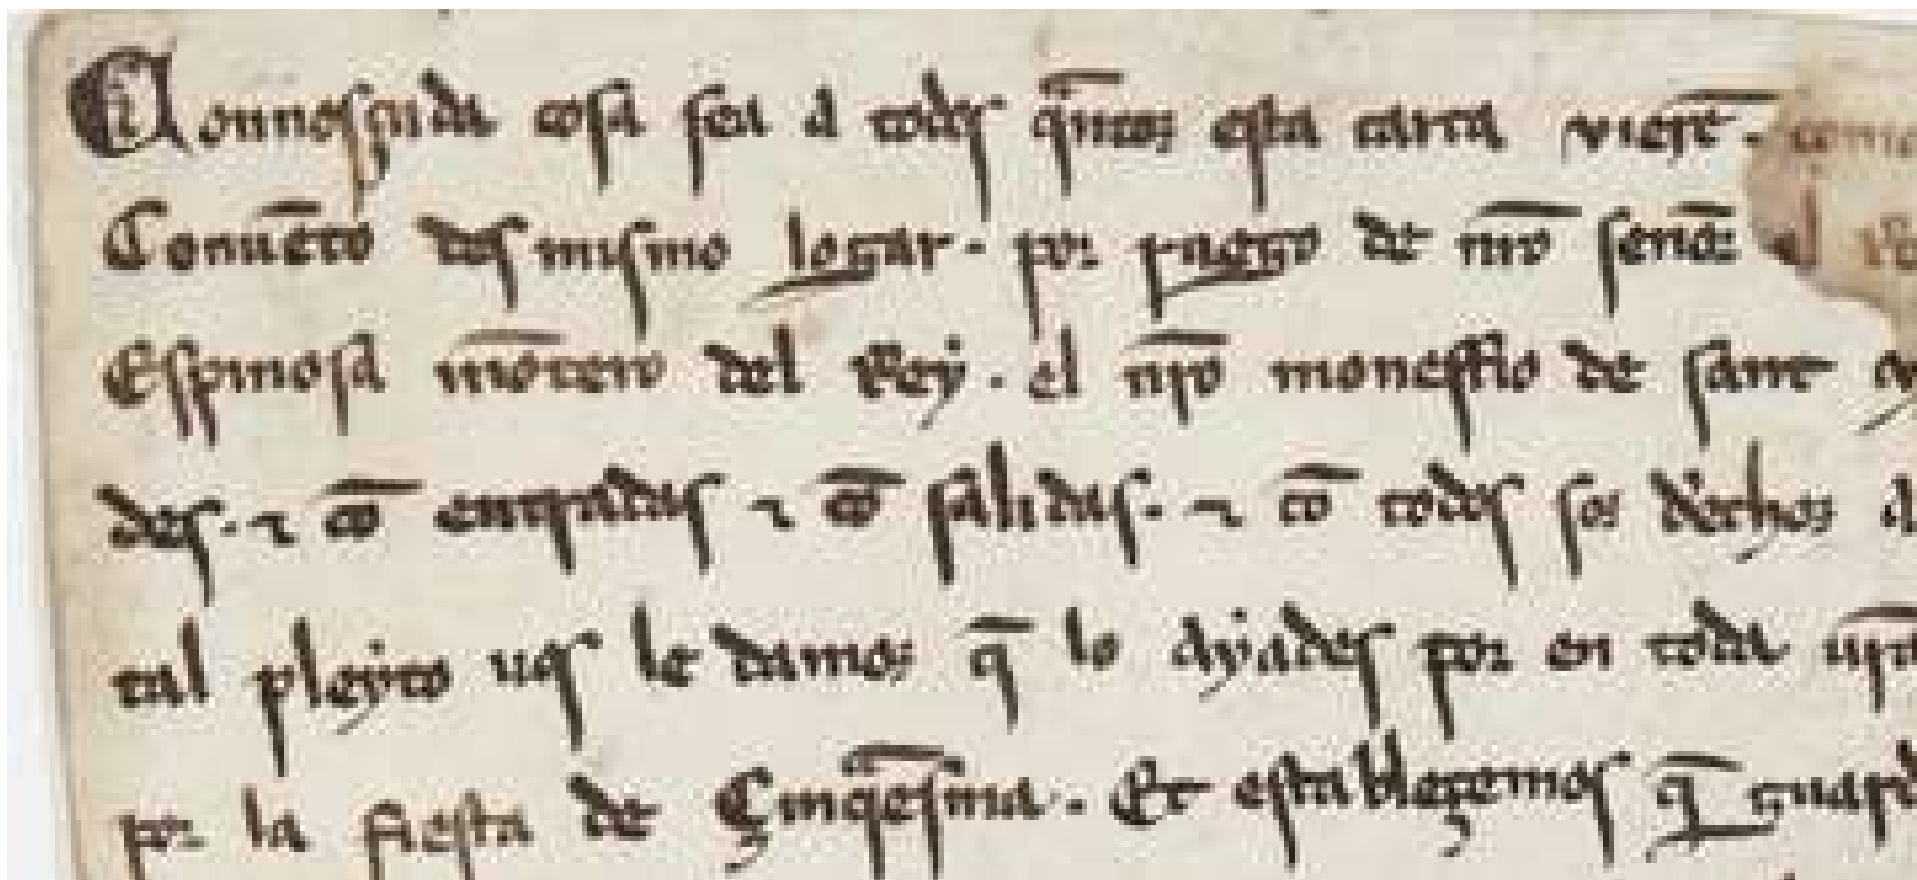 Connosçuda cosa sea a todos q̄ntos esta carta vierē. como
Conuēto dos mismo logar. por ruego de nr̄o senōr el
Espinosa mōtero del Rey. el nr̄o monesṭio de sant
des. ⁊ cō entradas ⁊ cō salidas. ⁊ cō todos sos dechos
tal pleyto uos le damos q̄ lo ayades por en toda ur̄a
por la fiesta de Çinq̄esma. Et estableçemos q̄ guard